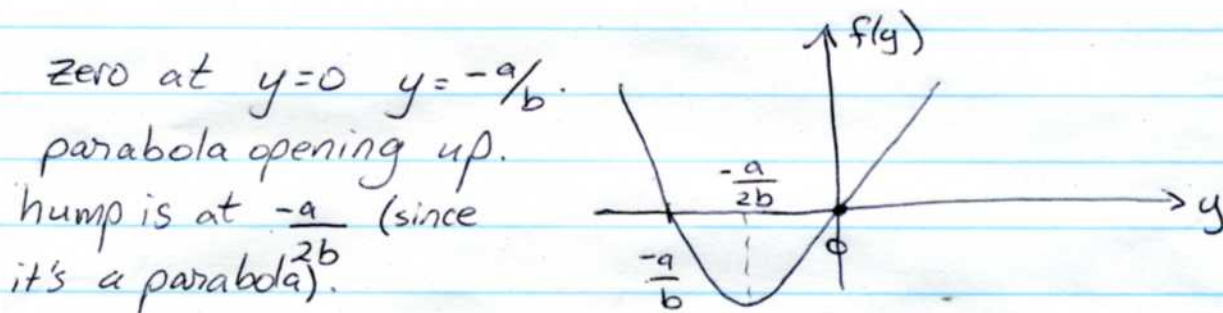 zero at y=0 y=-a/b.
parabola opening up.
hump is at -a/2b (since
it's a parabola).
f(y)
-a/2b
y
0
-a/b